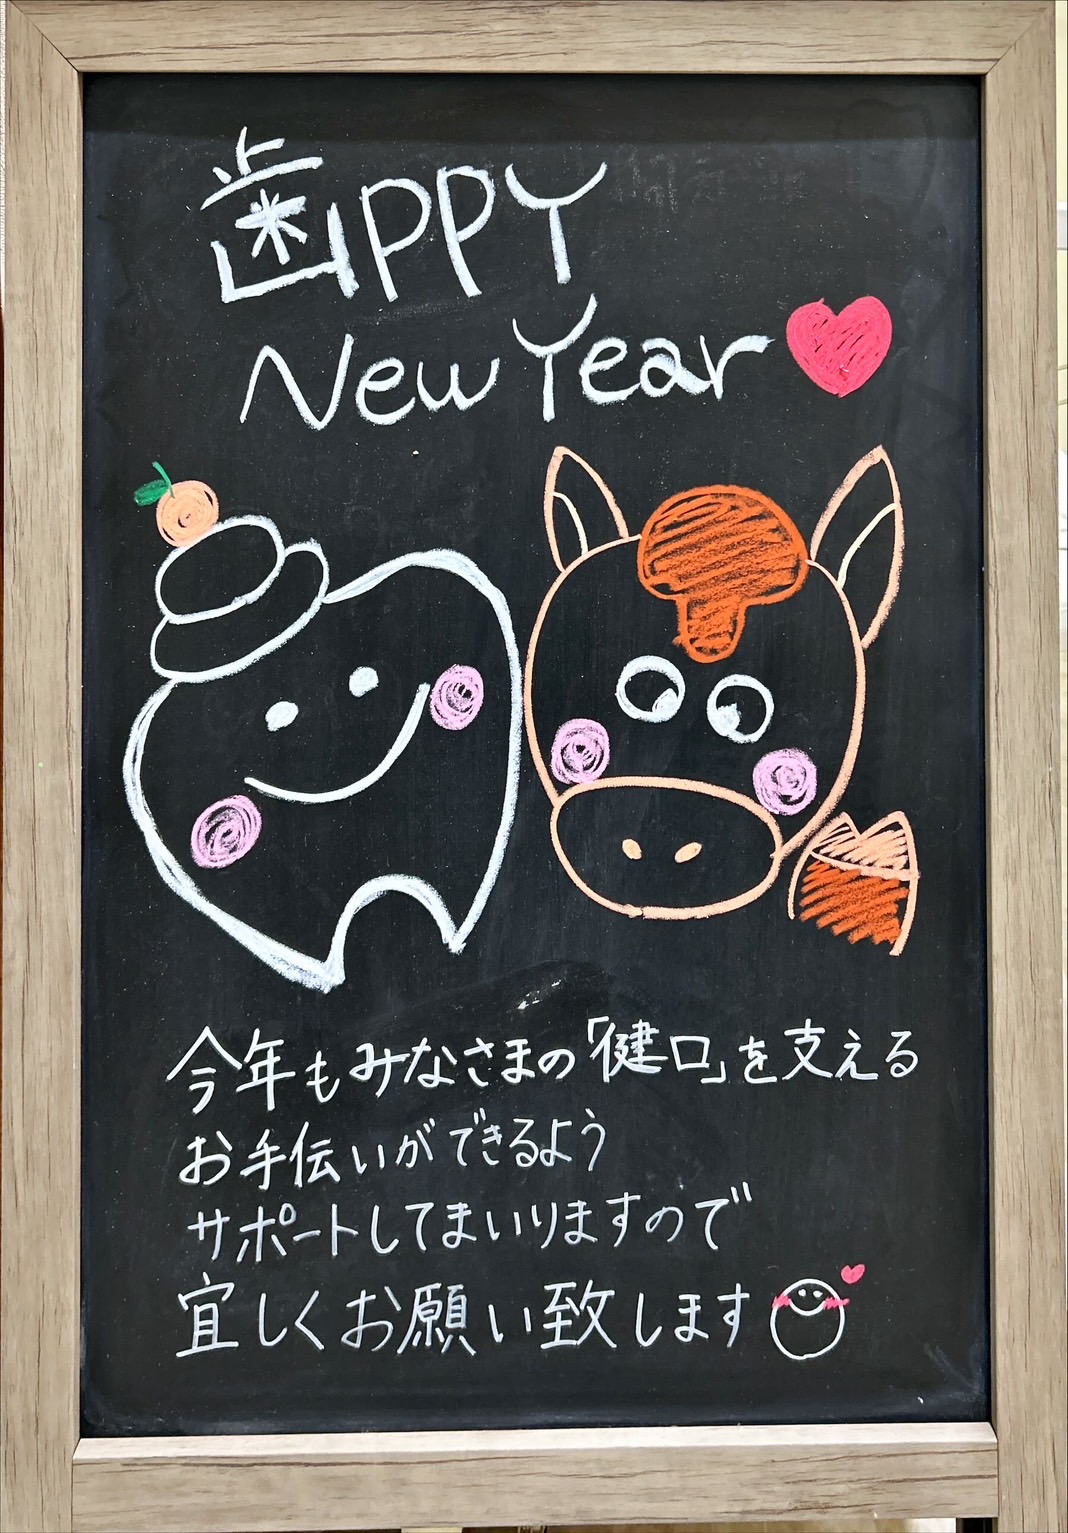 歯PPY
New Year
今年もみなさまの「健口」を支える
お手伝いができるよう
サポートしてまいりますので
宜しくお願い致します